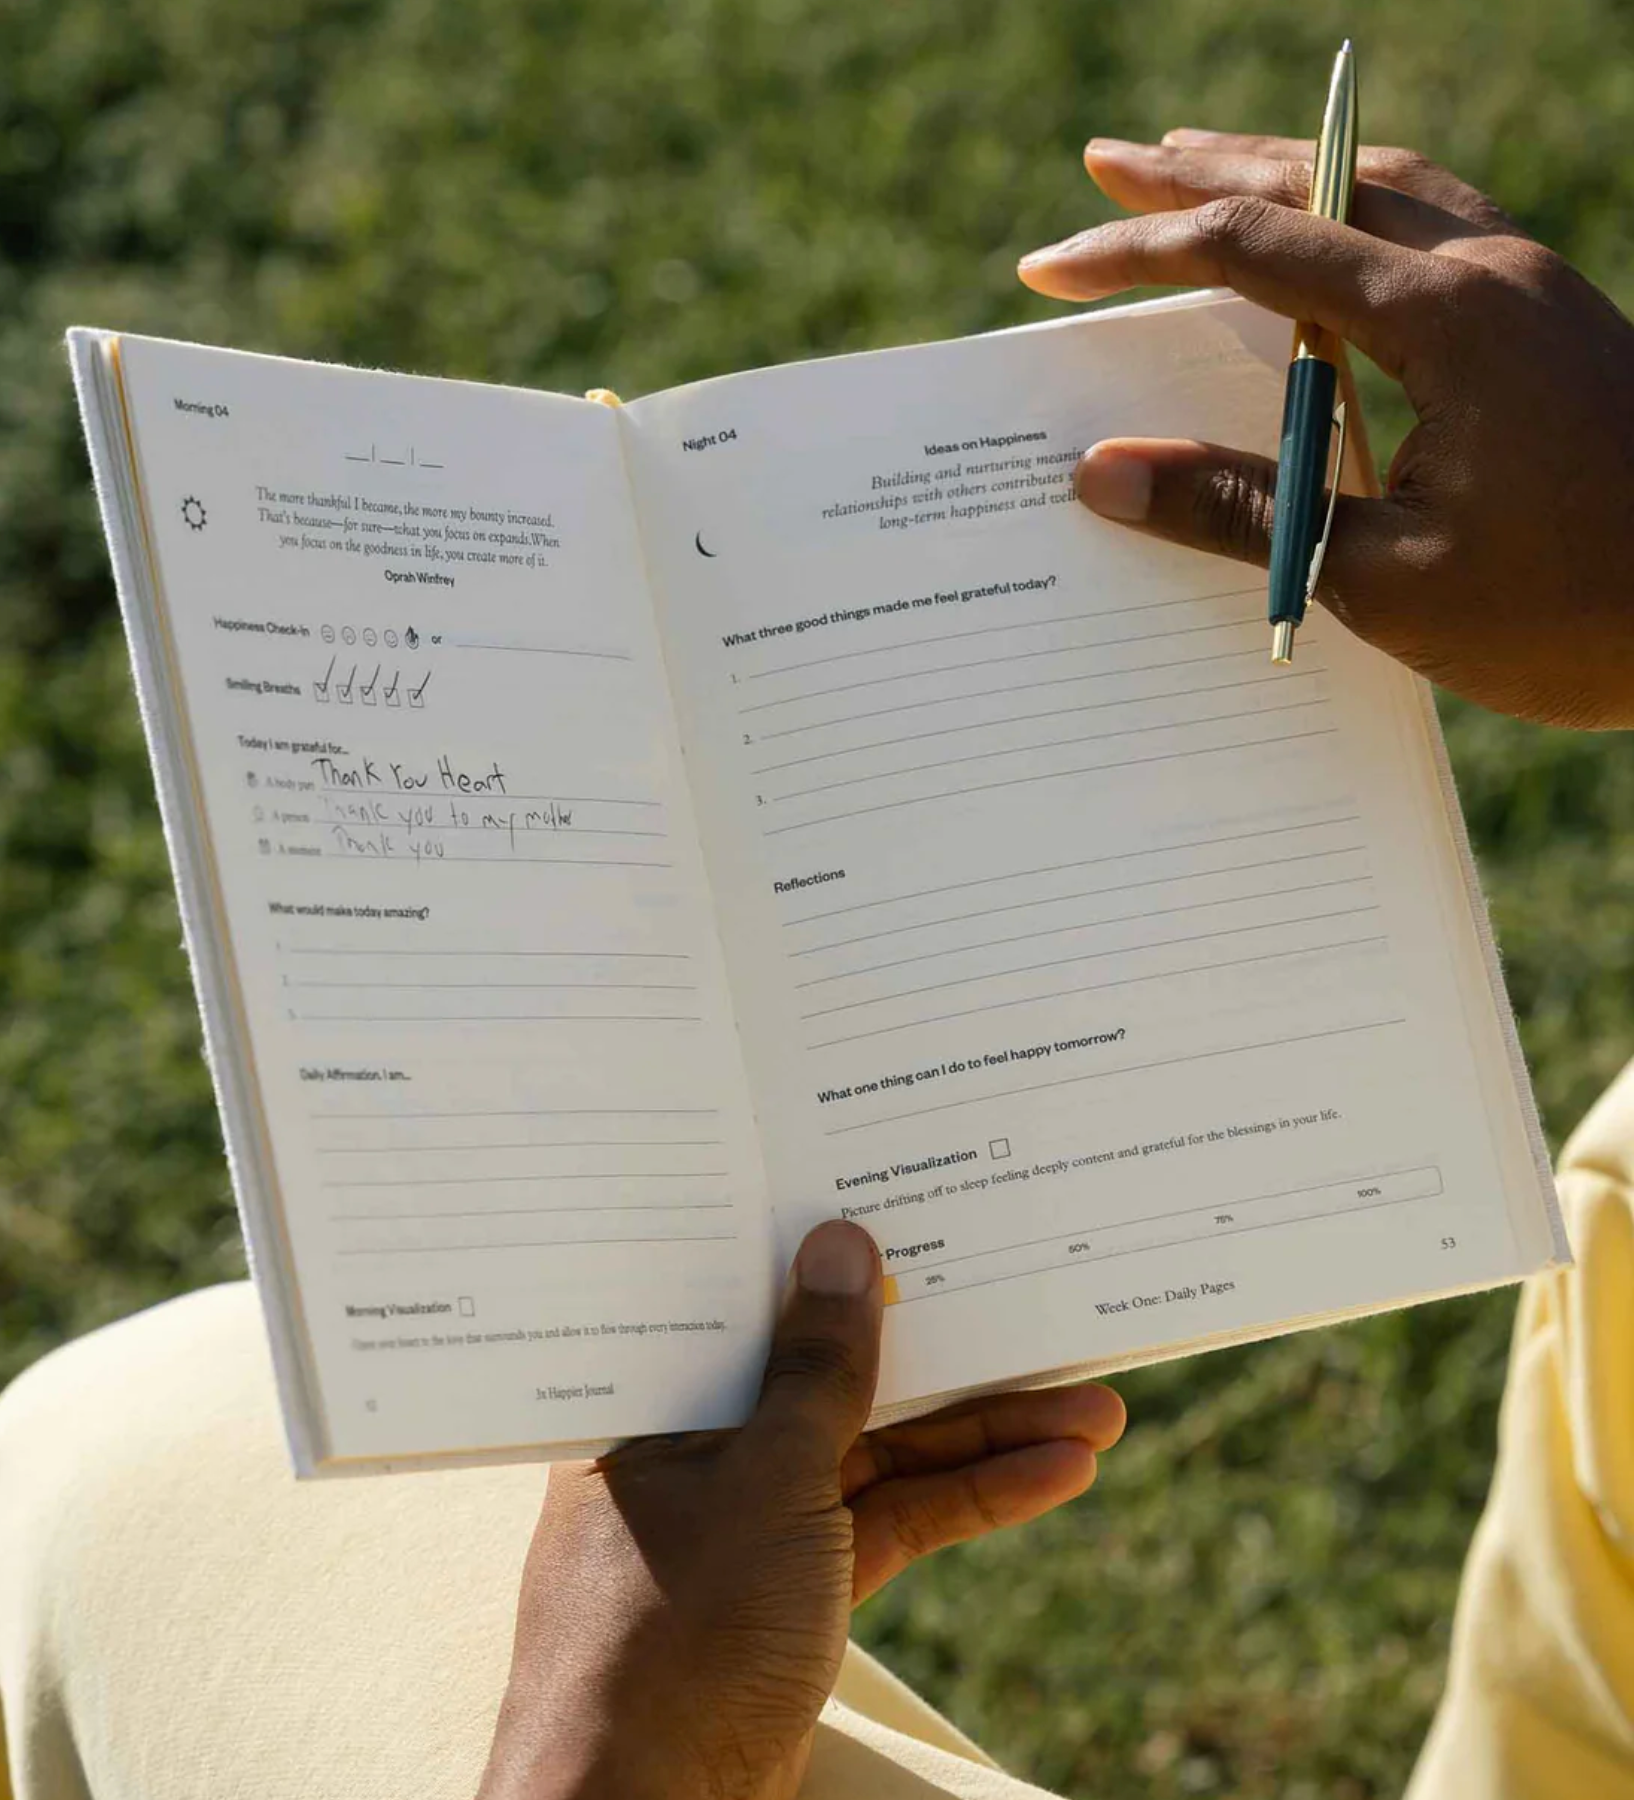 Morning 04
The more thankful I became, the more my bounty increased.
That's because—for sure—what you focus on expands. When
you focus on the goodness in life, you create more of it.
Oprah Winfrey
Happiness Check-In or
Smiling Breaths
Today I am grateful for...
A body part Thank You Heart
A person Thank you to my mother
A moment Thank you
What would make today amazing?
1.
2.
3.
Daily Affirmation. I am...
Morning Visualization
Open your heart to the love that surrounds you and allow it to flow through every interaction today.
3x Happier Journal
Night 04
Ideas on Happiness
Building and nurturing
relationships with others contributes
long-term happiness and
What three good things made me feel grateful today?
1.
2.
3.
Reflections
What one thing can I do to feel happy tomorrow?
Evening Visualization
Picture drifting off to sleep feeling deeply content and grateful for the blessings in your life.
Progress
25% 50% 75% 100%
Week One: Daily Pages
53